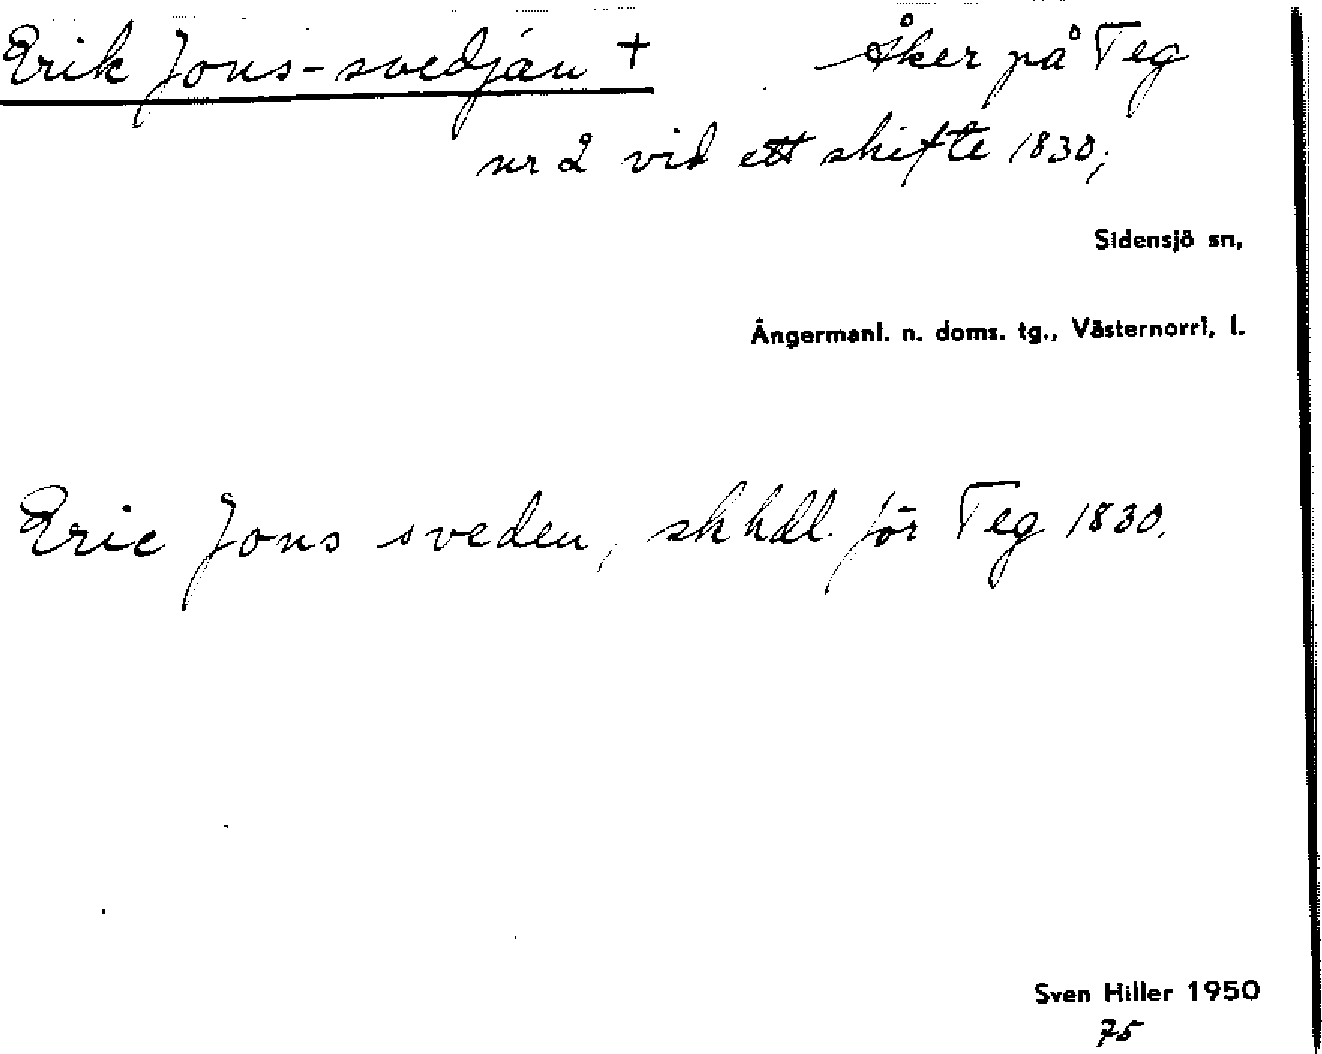 Erik Jons-svedján + Åker på Teg
nr 2 vid ett skifte 1830;
Sidensjö sn,
Ångermanl. n. doms. tg., Västernorrl. l.
Eric Jons sveden, skhdl. för Teg 1830.
Sven Hiller 1950
75